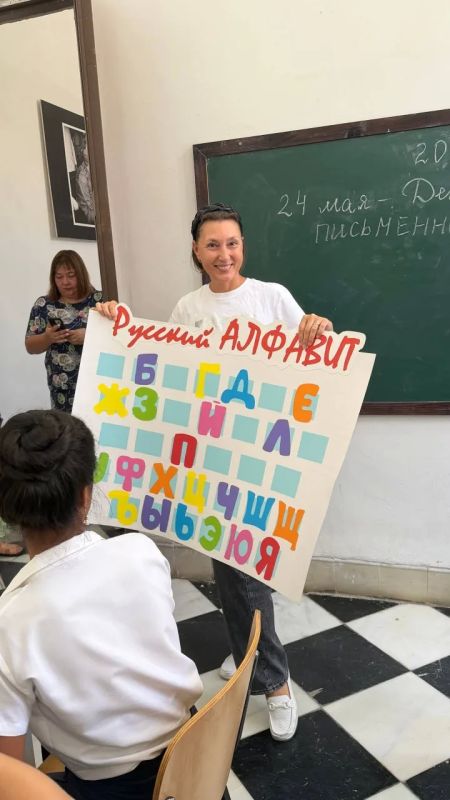 20
24 мая - Де
ПИСЬМЕНН
Русский АЛФАВИТ
Б Г Д Є
Ж З Й Л
П
Ф Х Ц Ч Ш Щ
Ъ Ы Ь Э Ю Я